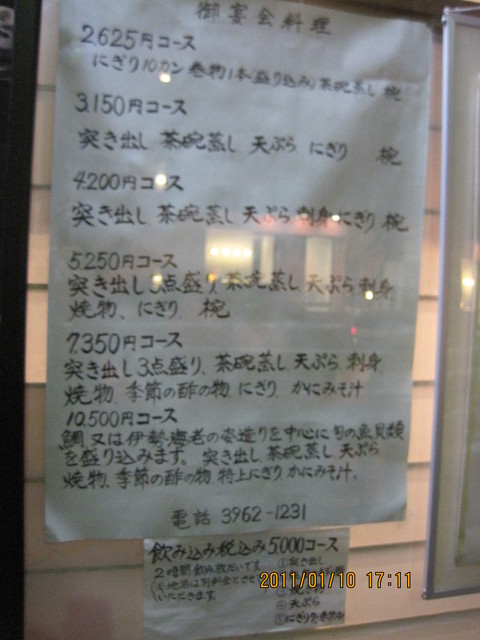 御宴会料理
2.625円コース
にぎり10カン 巻物1本(盛り込み)茶碗蒸し 椀
3.150円コース
突き出し 茶碗蒸し 天ぷら にぎり 椀
4.200円コース
突き出し 茶碗蒸し 天ぷら 刺身 にぎり 椀
5.250円コース
突き出し 3点盛り 茶碗蒸し 天ぷら 刺身
焼物、にぎり、椀
7.350円コース
突き出し3点盛り、茶碗蒸し、天ぷら 刺身
焼物、季節の酢の物、にぎり、かにみそ汁
10.500円コース
鯛又は伊勢海老の姿造りを中心に旬の魚貝類
を盛り込みます。突き出し 茶碗蒸し 天ぷら
焼物、季節の酢の物、特上にぎり かにみそ汁。
電話 3962-1231
飲み込み税込み5.000コース
2時間飲み放だいです
①突き出し
地酒は別料金とさせ
いただきます
③焼き物
④天ぷら
2011/01/10 17:11